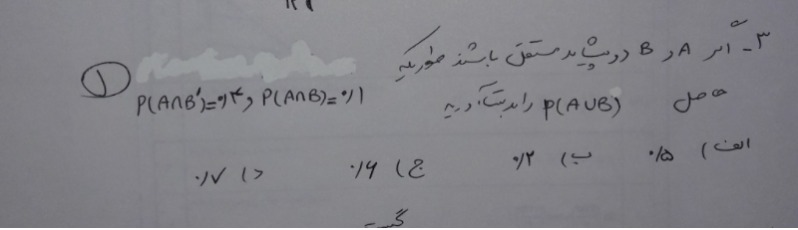 ۳ـ اگر A و B دو پیشامد مستقل باشند طوریکه
P(A∩B')=۰/۴ و P(A∩B)=۰/۱
حاصل P(A∪B) را بدست آورید
①
الف) ۰/۵ ب) ۰/۲ ج) ۰/۶ د) ۰/۷